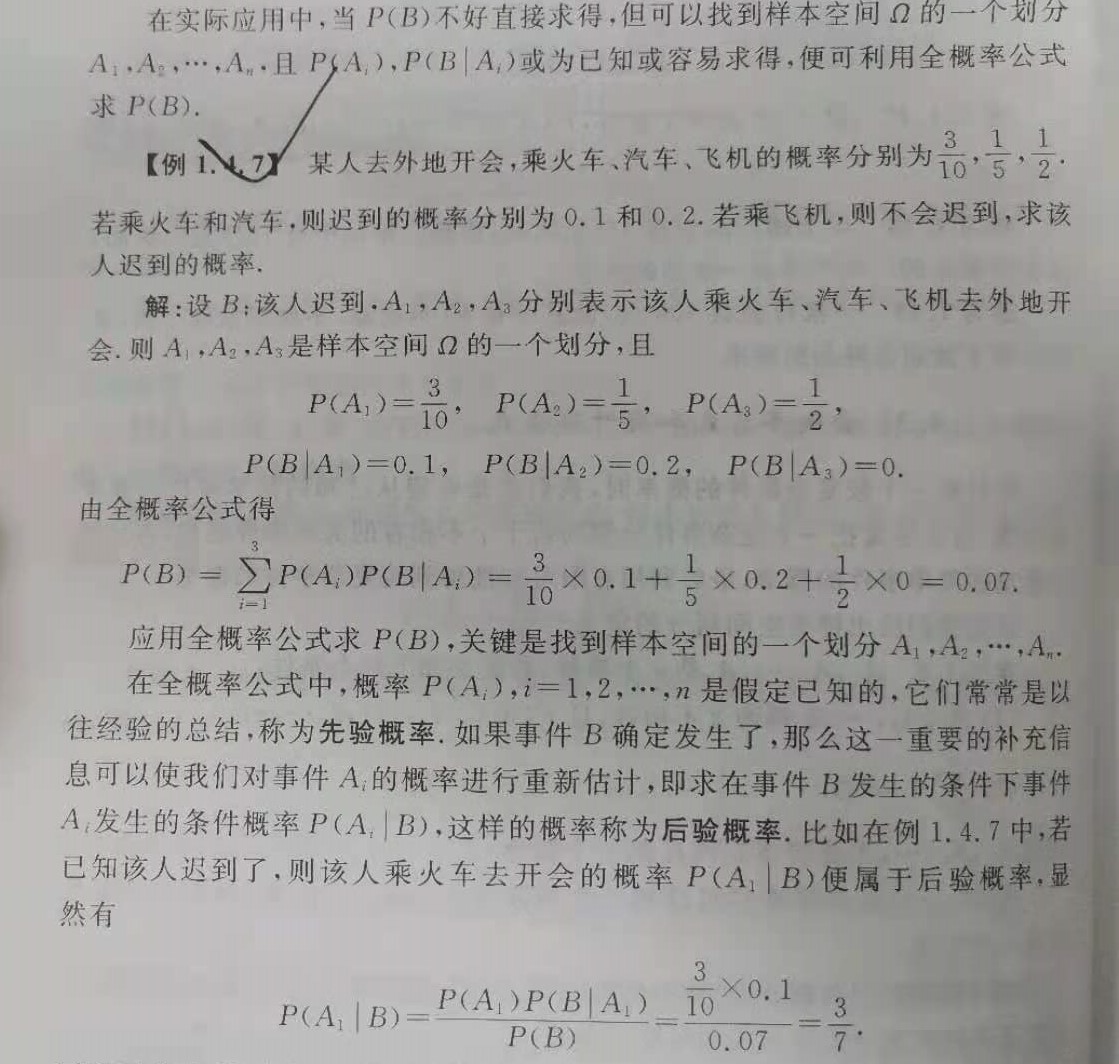 在实际应用中,当 P(B)不好直接求得,但可以找到样本空间 Ω 的一个划分
A₁,A₂,…,Aₙ,且 P(Aᵢ),P(B|Aᵢ)或为已知或容易求得,便可利用全概率公式
求 P(B).
【例 1.4.7】 某人去外地开会,乘火车、汽车、飞机的概率分别为 3/10, 1/5, 1/2.
若乘火车和汽车,则迟到的概率分别为 0.1 和 0.2. 若乘飞机,则不会迟到,求该
人迟到的概率.
解:设 B:该人迟到. A₁,A₂,A₃分别表示该人乘火车、汽车、飞机去外地开
会. 则 A₁,A₂,A₃是样本空间 Ω 的一个划分,且
P(A₁)=3/10, P(A₂)=1/5, P(A₃)=1/2,
P(B|A₁)=0.1, P(B|A₂)=0.2, P(B|A₃)=0.
由全概率公式得
P(B) = ∑_{i=1}^{3} P(Aᵢ)P(B|Aᵢ) = 3/10 × 0.1 + 1/5 × 0.2 + 1/2 × 0 = 0.07.
应用全概率公式求 P(B),关键是找到样本空间的一个划分 A₁,A₂,…,Aₙ.
在全概率公式中,概率 P(Aᵢ),i=1,2,…,n 是假定已知的,它们常常是以
往经验的总结,称为先验概率. 如果事件 B 确定发生了,那么这一重要的补充信
息可以使我们对事件 Aᵢ的概率进行重新估计,即求在事件 B 发生的条件下事件
Aᵢ发生的条件概率 P(Aᵢ|B),这样的概率称为后验概率. 比如在例 1.4.7 中,若
已知该人迟到了,则该人乘火车去开会的概率 P(A₁|B)便属于后验概率,显
然有
P(A₁|B)= P(A₁)P(B|A₁)/P(B) = (3/10 × 0.1)/0.07 = 3/7.